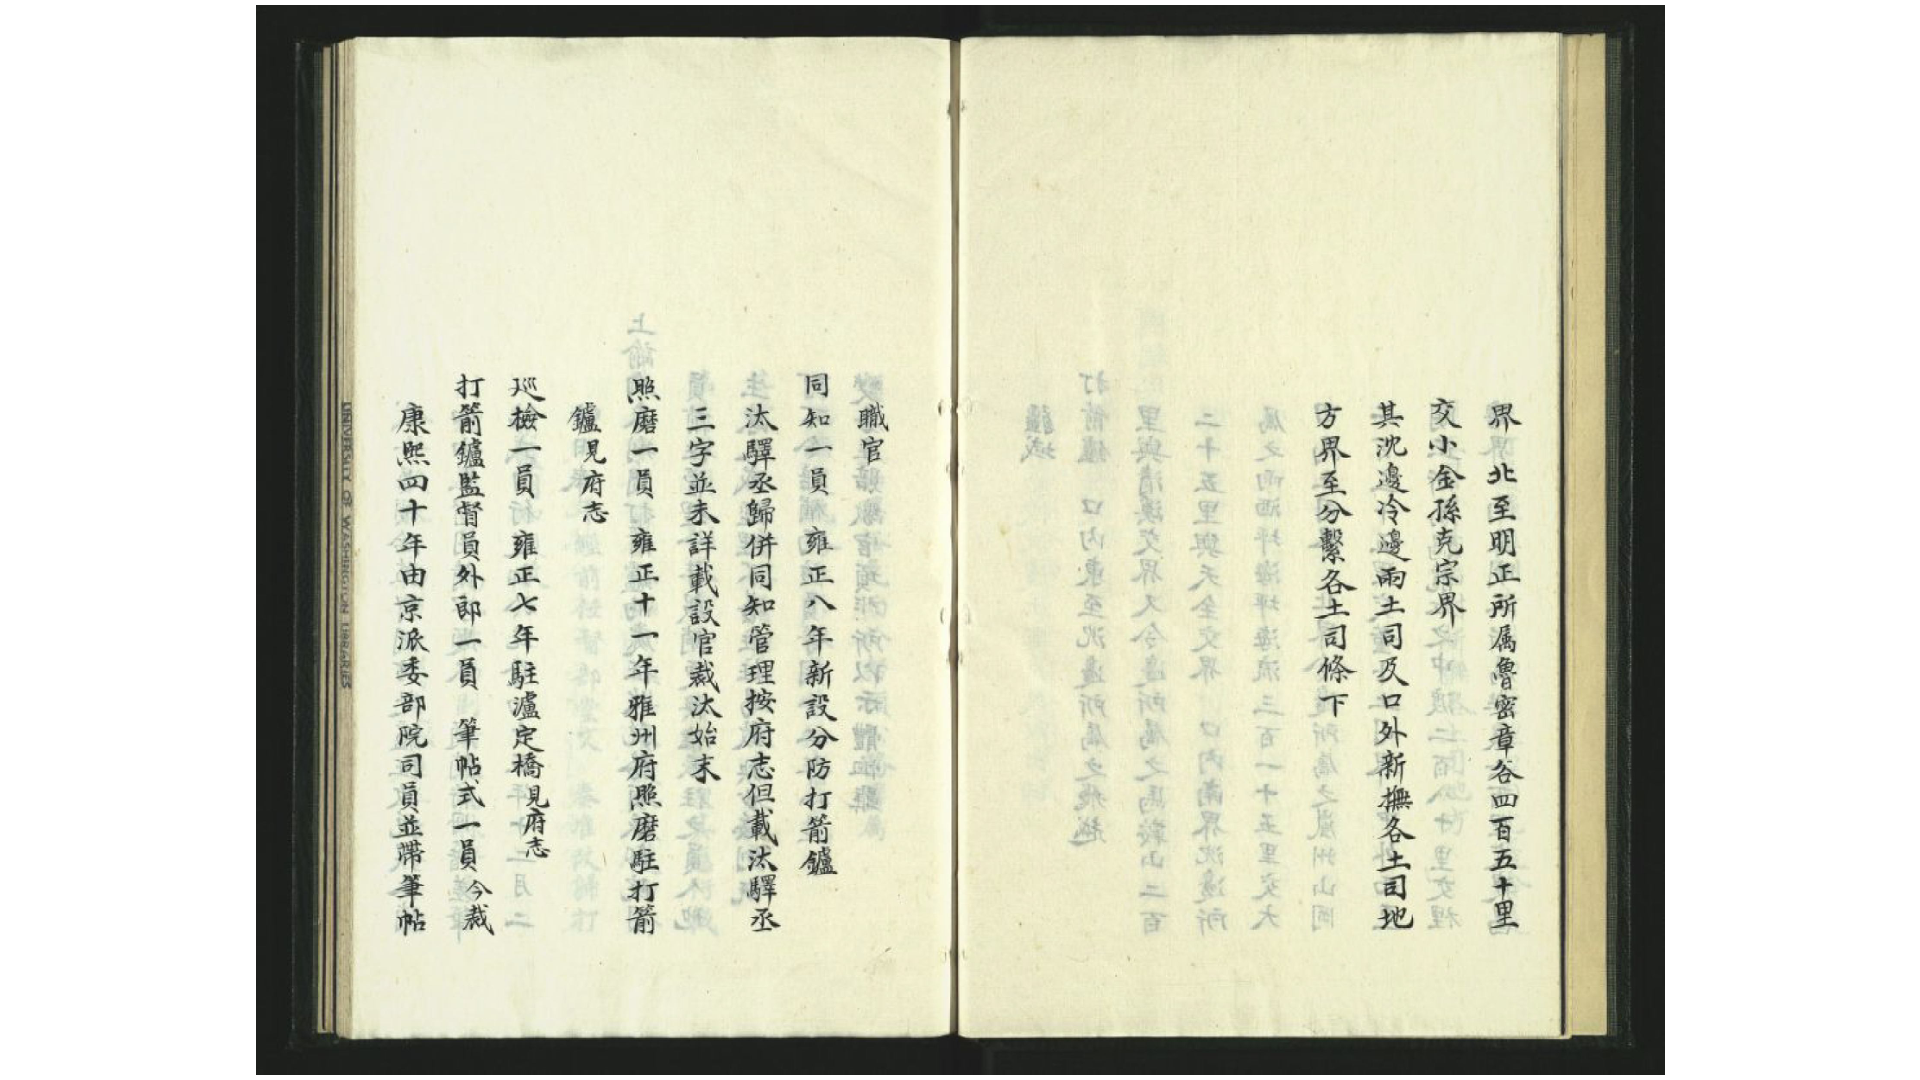 界　北至明正所属魯密章谷四百五十里
交小金孫克宗界
其沈邊冷邊兩土司及口外新撫各土司地
方界至分繫各土司條下
職官
同知一員　雍正八年新設分防打箭鑪
汰驛丞歸併同知管理按府志但載汰驛丞
三字並未詳載設官裁汰始末
照磨一員　雍正十一年雅州府照磨駐打箭
鑪見府志
巡檢一員　雍正七年駐瀘定橋見府志
打箭鑪監督員外郎一員　筆帖式一員今裁
康熙四十年由京派委部院司員並帶筆帖